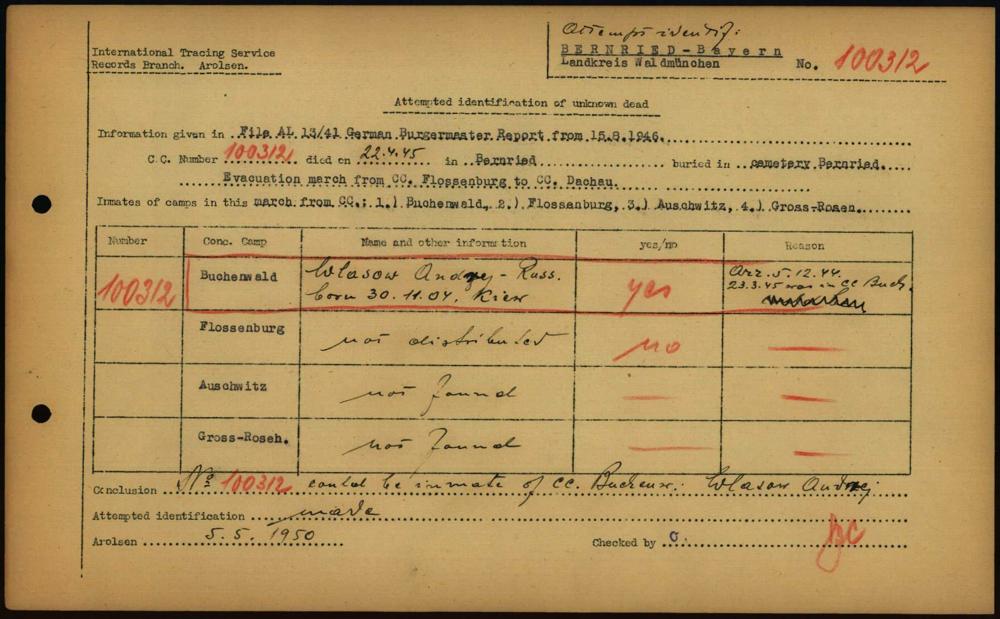 Attempt identif:
International Tracing Service
Records Branch. Arolsen.
BERNRIED-Bayern
Landkreis Waldmünchen
No. 100312
Attempted identification of unknown dead
Information given in File AL 13/41 German Burgermaater Report from 15.8.1946.
C.C. Number 100312 died on 22.4.45 in Bernried buried in cemetery Bernried.
Evacuation march from CC. Flossenburg to CC. Dachau.
Inmates of camps in this march from CC.: 1.) Buchenwald, 2.) Flossenburg, 3.) Auschwitz, 4.) Gross-Rosen.
Number Conc. Camp Name and other information yes/no Reason
100312 Buchenwald Wlasow Andrej - Russ. born 30.11.04. Kiew yes Arr. 5.12.44. 23.3.45 was in CC Buch.
Flossenburg not distributed no
Auschwitz not found
Gross-Roseh. not found
Conclusion No 100312 could be inmate of CC. Buchenw. Wlasow Andrej
Attempted identification made
Arolsen 5.5.1950 Checked by